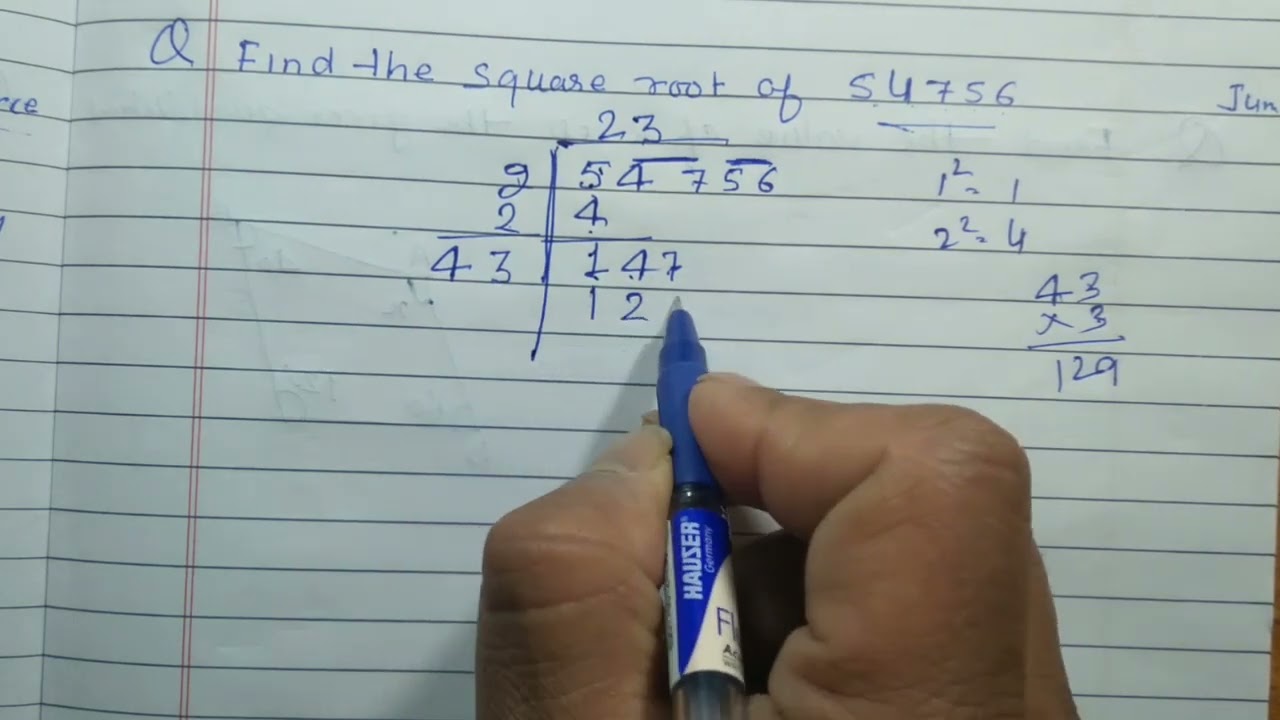 Q Find the square root of 54756
Jun
23
2 54756
2 4
43 147
12
1² = 1
2² = 4
43
×3
129
HAUSER
Germany